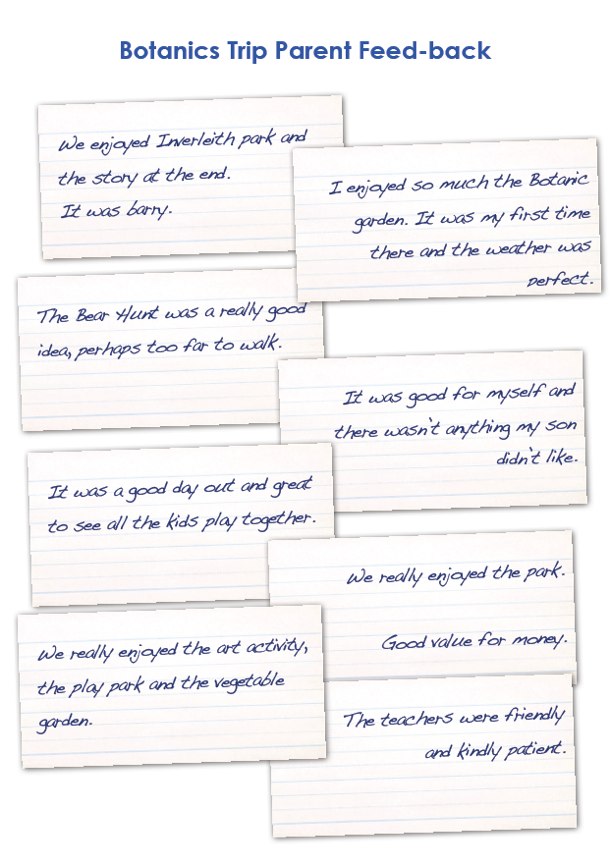 Botanics Trip Parent Feed-back
We enjoyed Inverleith park and
the story at the end.
It was barry.
I enjoyed so much the Botanic
garden. It was my first time
there and the weather was
perfect.
The Bear Hunt was a really good
idea, perhaps too far to walk.
It was good for myself and
there wasn't anything my son
didn't like.
It was a good day out and great
to see all the kids play together.
We really enjoyed the park.
Good value for money.
We really enjoyed the art activity,
the play park and the vegetable
garden.
The teachers were friendly
and kindly patient.